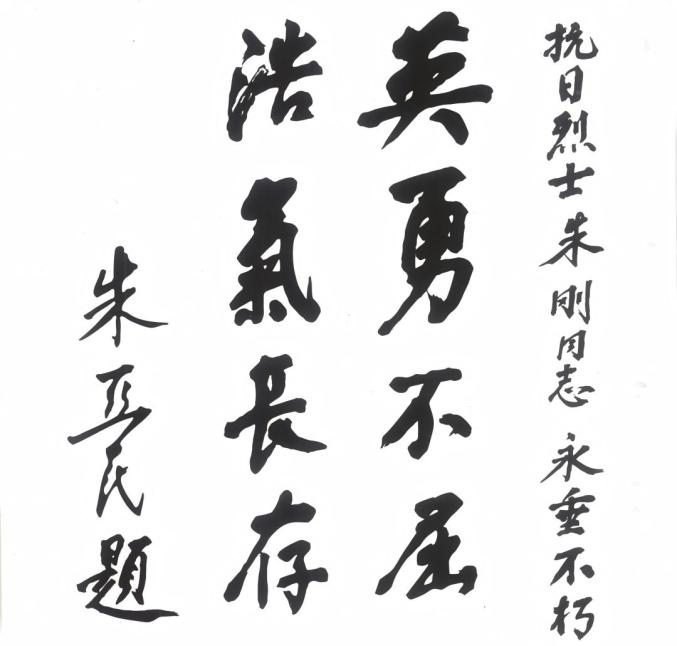 抗日烈士朱刚同志永垂不朽
英勇不屈
浩氣長存
朱亚民題